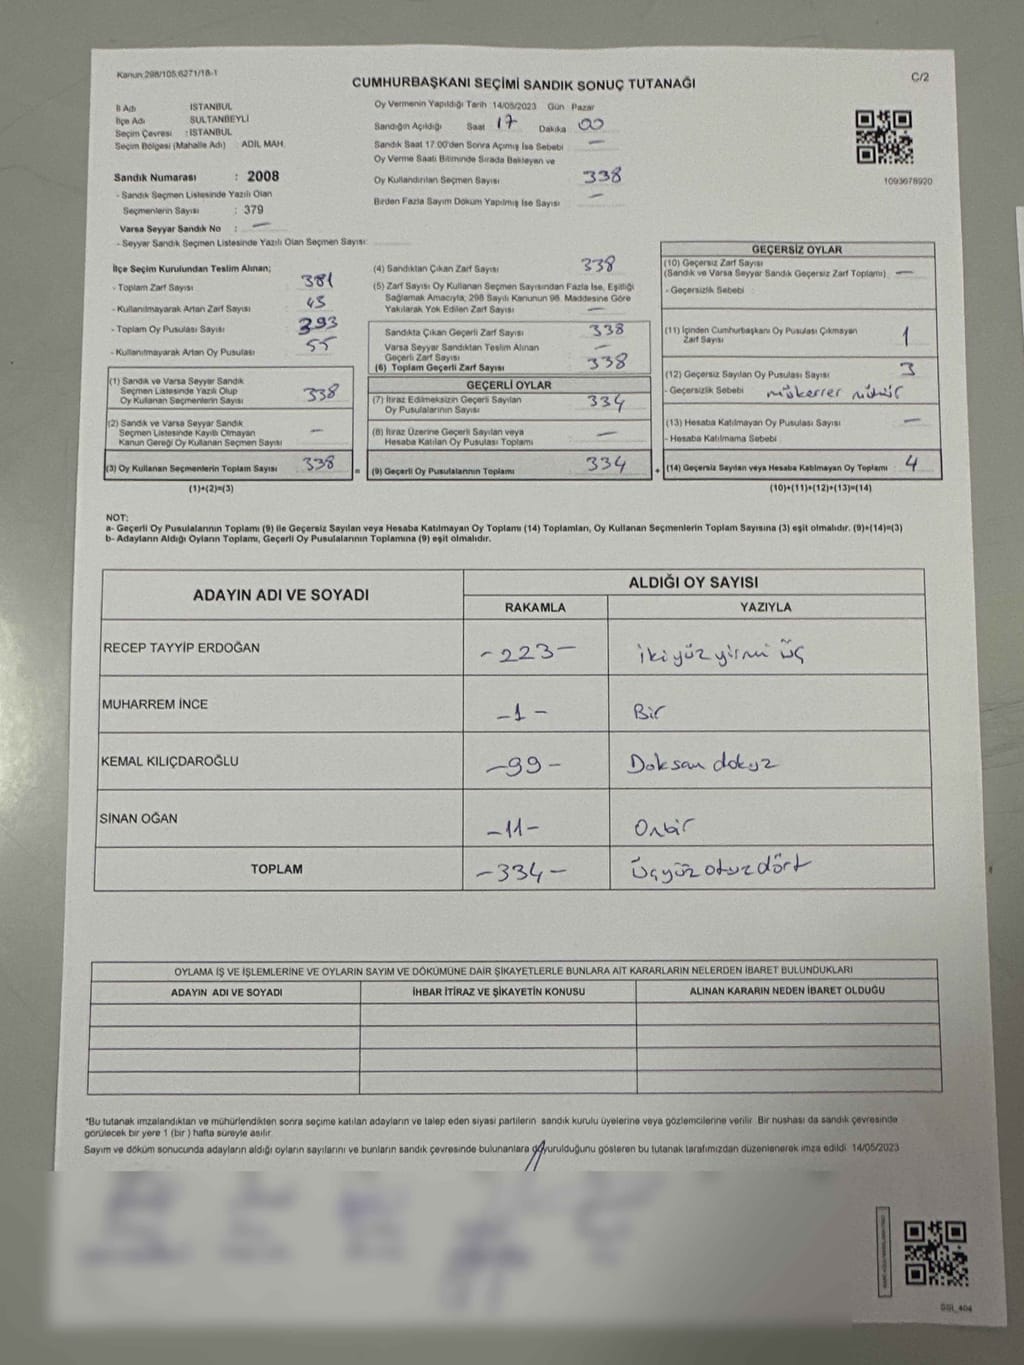 Kanun:298/105;6271/18-1
C/2
CUMHURBAŞKANI SEÇİMİ SANDIK SONUÇ TUTANAĞI
İl Adı ISTANBUL
İlçe Adı SULTANBEYLİ
Seçim Çevresi : ISTANBUL
Seçim Bölgesi (Mahalle Adı) ADIL MAH.
Sandık Numarası : 2008
- Sandık Seçmen Listesinde Yazılı Olan
Seçmenlerin Sayısı : 379
Varsa Seyyar Sandık No : —
- Seyyar Sandık Seçmen Listesinde Yazılı Olan Seçmen Sayısı:
Oy Vermenin Yapıldığı Tarih 14/05/2023 Gün Pazar
Sandığın Açıldığı Saat 17 Dakika 00
Sandık Saat 17.00'den Sonra Açımış İse Sebebi —
Oy Verme Saati Bitiminde Sırada Bekleyen ve
Oy Kullandırılan Seçmen Sayısı 338
Birden Fazla Sayım Döküm Yapılmış İse Sayısı —
1093078920
İlçe Seçim Kurulundan Teslim Alınan;
- Toplam Zarf Sayısı 381
- Kullanılmayarak Artan Zarf Sayısı 43
- Toplam Oy Pusulası Sayısı 393
- Kullanılmayarak Artan Oy Pusulası 55
(1) Sandık ve Varsa Seyyar Sandık
Seçmen Listesinde Yazılı Olup
Oy Kullanan Seçmenlerin Sayısı 338
(2) Sandık ve Varsa Seyyar Sandık
Seçmen Listesinde Kayıtlı Olmayan
Kanun Gereği Oy Kullanan Seçmen Sayısı —
(3) Oy Kullanan Seçmenlerin Toplam Sayısı 338
(1)+(2)=(3)
(4) Sandıktan Çıkan Zarf Sayısı 338
(5) Zarf Sayısı Oy Kullanan Seçmen Sayısından Fazla İse, Eşitliği
Sağlamak Amacıyla, 298 Sayılı Kanunun 98. Maddesine Göre
Yakılarak Yok Edilen Zarf Sayısı —
Sandıkta Çıkan Geçerli Zarf Sayısı 338
Varsa Seyyar Sandıktan Teslim Alınan
Geçerli Zarf Sayısı —
(6) Toplam Geçerli Zarf Sayısı 338
GEÇERLİ OYLAR
(7) İtiraz Edilmeksizin Geçerli Sayılan
Oy Pusulalarının Sayısı 334
(8) İtiraz Üzerine Geçerli Sayılan veya
Hesaba Katılan Oy Pusulası Toplamı —
= (9) Geçerli Oy Pusulalarının Toplamı 334
GEÇERSİZ OYLAR
(10) Geçersiz Zarf Sayısı
(Sandık ve Varsa Seyyar Sandık Geçersiz Zarf Toplamı) —
- Geçersizlik Sebebi :
(11) İçinden Cumhurbaşkanı Oy Pusulası Çıkmayan
Zarf Sayısı 1
(12) Geçersiz Sayılan Oy Pusulası Sayısı 3
- Geçersizlik Sebebi mükerrer mühür
(13) Hesaba Katılmayan Oy Pusulası Sayısı —
- Hesaba Katılmama Sebebi :
+ (14) Geçersiz Sayılan veya Hesaba Katılmayan Oy Toplamı 4
(10)+(11)+(12)+(13)=(14)
NOT:
a- Geçerli Oy Pusulalarının Toplamı (9) ile Geçersiz Sayılan veya Hesaba Katılmayan Oy Toplamı (14) Toplamları, Oy Kullanan Seçmenlerin Toplam Sayısına (3) eşit olmalıdır. (9)+(14)=(3)
b- Adayların Aldığı Oyların Toplamı, Geçerli Oy Pusulalarının Toplamına (9) eşit olmalıdır.
ADAYIN ADI VE SOYADI ALDIĞI OY SAYISI
RAKAMLA YAZIYLA
RECEP TAYYİP ERDOĞAN -223- ikiyüz yirmi üç
MUHARREM İNCE -1- Bir
KEMAL KILIÇDAROĞLU -99- Doksan dokuz
SİNAN OĞAN -11- Onbir
TOPLAM -334- Üçyüz otuz dört
OYLAMA İŞ VE İŞLEMLERİNE VE OYLARIN SAYIM VE DÖKÜMÜNE DAİR ŞİKAYETLERLE BUNLARA AİT KARARLARIN NELERDEN İBARET BULUNDUKLARI
ADAYIN ADI VE SOYADI İHBAR İTİRAZ VE ŞİKAYETİN KONUSU ALINAN KARARIN NEDEN İBARET OLDUĞU
*Bu tutanak imzalandıktan ve mühürlendikten sonra seçime katılan adayların ve talep eden siyasi partilerin sandık kurulu üyelerine veya gözlemcilerine verilir. Bir nüshası da sandık çevresinde
görülecek bir yere 1 (bir ) hafta süreyle asılır.
Sayım ve döküm sonucunda adayların aldığı oyların sayılarını ve bunların sandık çevresinde bulunanlara duyurulduğunu gösteren bu tutanak tarafımızdan düzenlenerek imza edildi. 14/05/2023